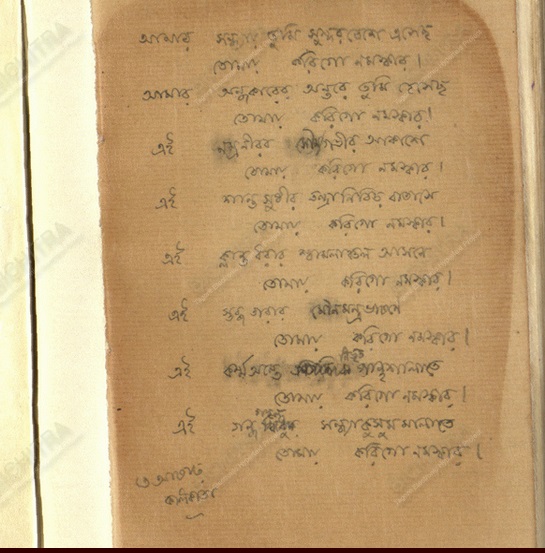 আমার সন্ধ্যায় তুমি সুন্দরবেশে এসেছ
তোমায় করিগো নমস্কার।
আমার অন্ধকারের অন্তরে তুমি হেসেছ
তোমায় করিগো নমস্কার।
এই নম্র নীরব সৌম্য গভীর আকাশে
তোমায় করিগো নমস্কার।
এই শান্ত সুধীর তন্দ্রানিবিড় বাতাসে
তোমায় করিগো নমস্কার।
এই ক্লান্ত ধরার শ্যামলাঞ্চল আসনে
তোমায় করিগো নমস্কার।
এই স্তব্ধ তারার মৌনমন্ত্র ভাষণে
তোমায় করিগো নমস্কার।
এই কর্ম্ম অন্তে নিভৃত পান্থশালাতে
তোমায় করিগো নমস্কার।
এই গন্ধ গহন সন্ধ্যাকুসুম মালাতে
তোমায় করিগো নমস্কার।
৩ আষাঢ়
কলিকাতা